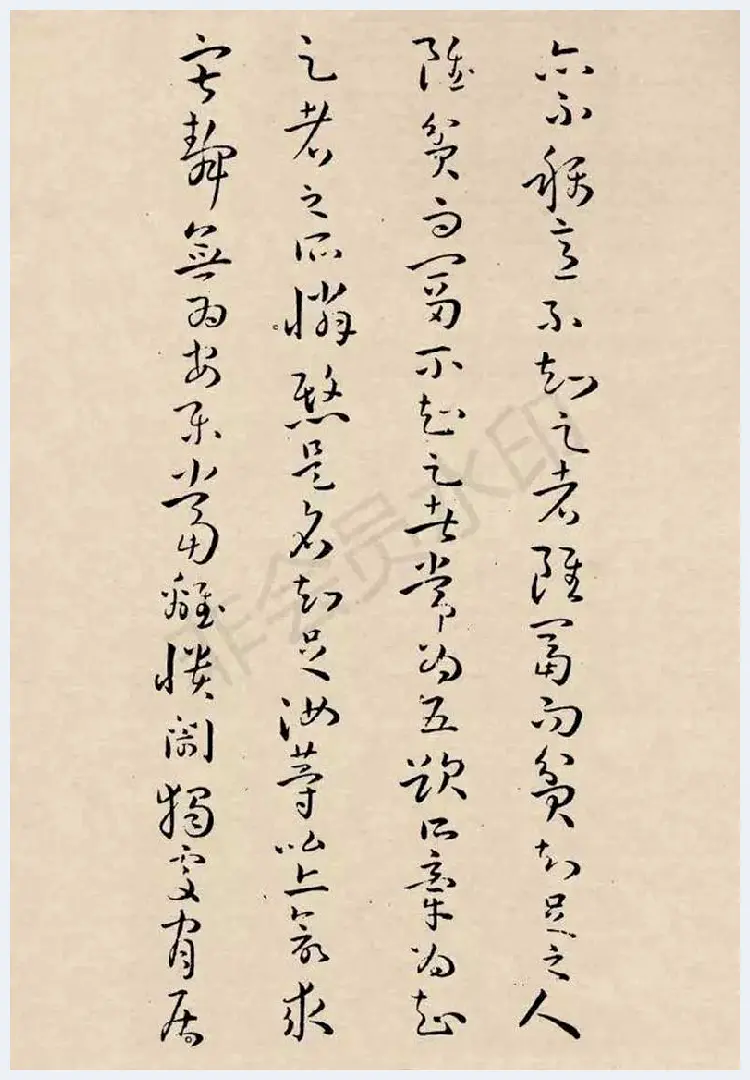 亦不稱意不知足者雖富而貧知足之人
雖貧而富不知足者常為五欲所牽為知
足者之所憐愍是名知足汝等比丘欲求
寂靜無為安樂當離憒鬧獨處閒居
非会员水印